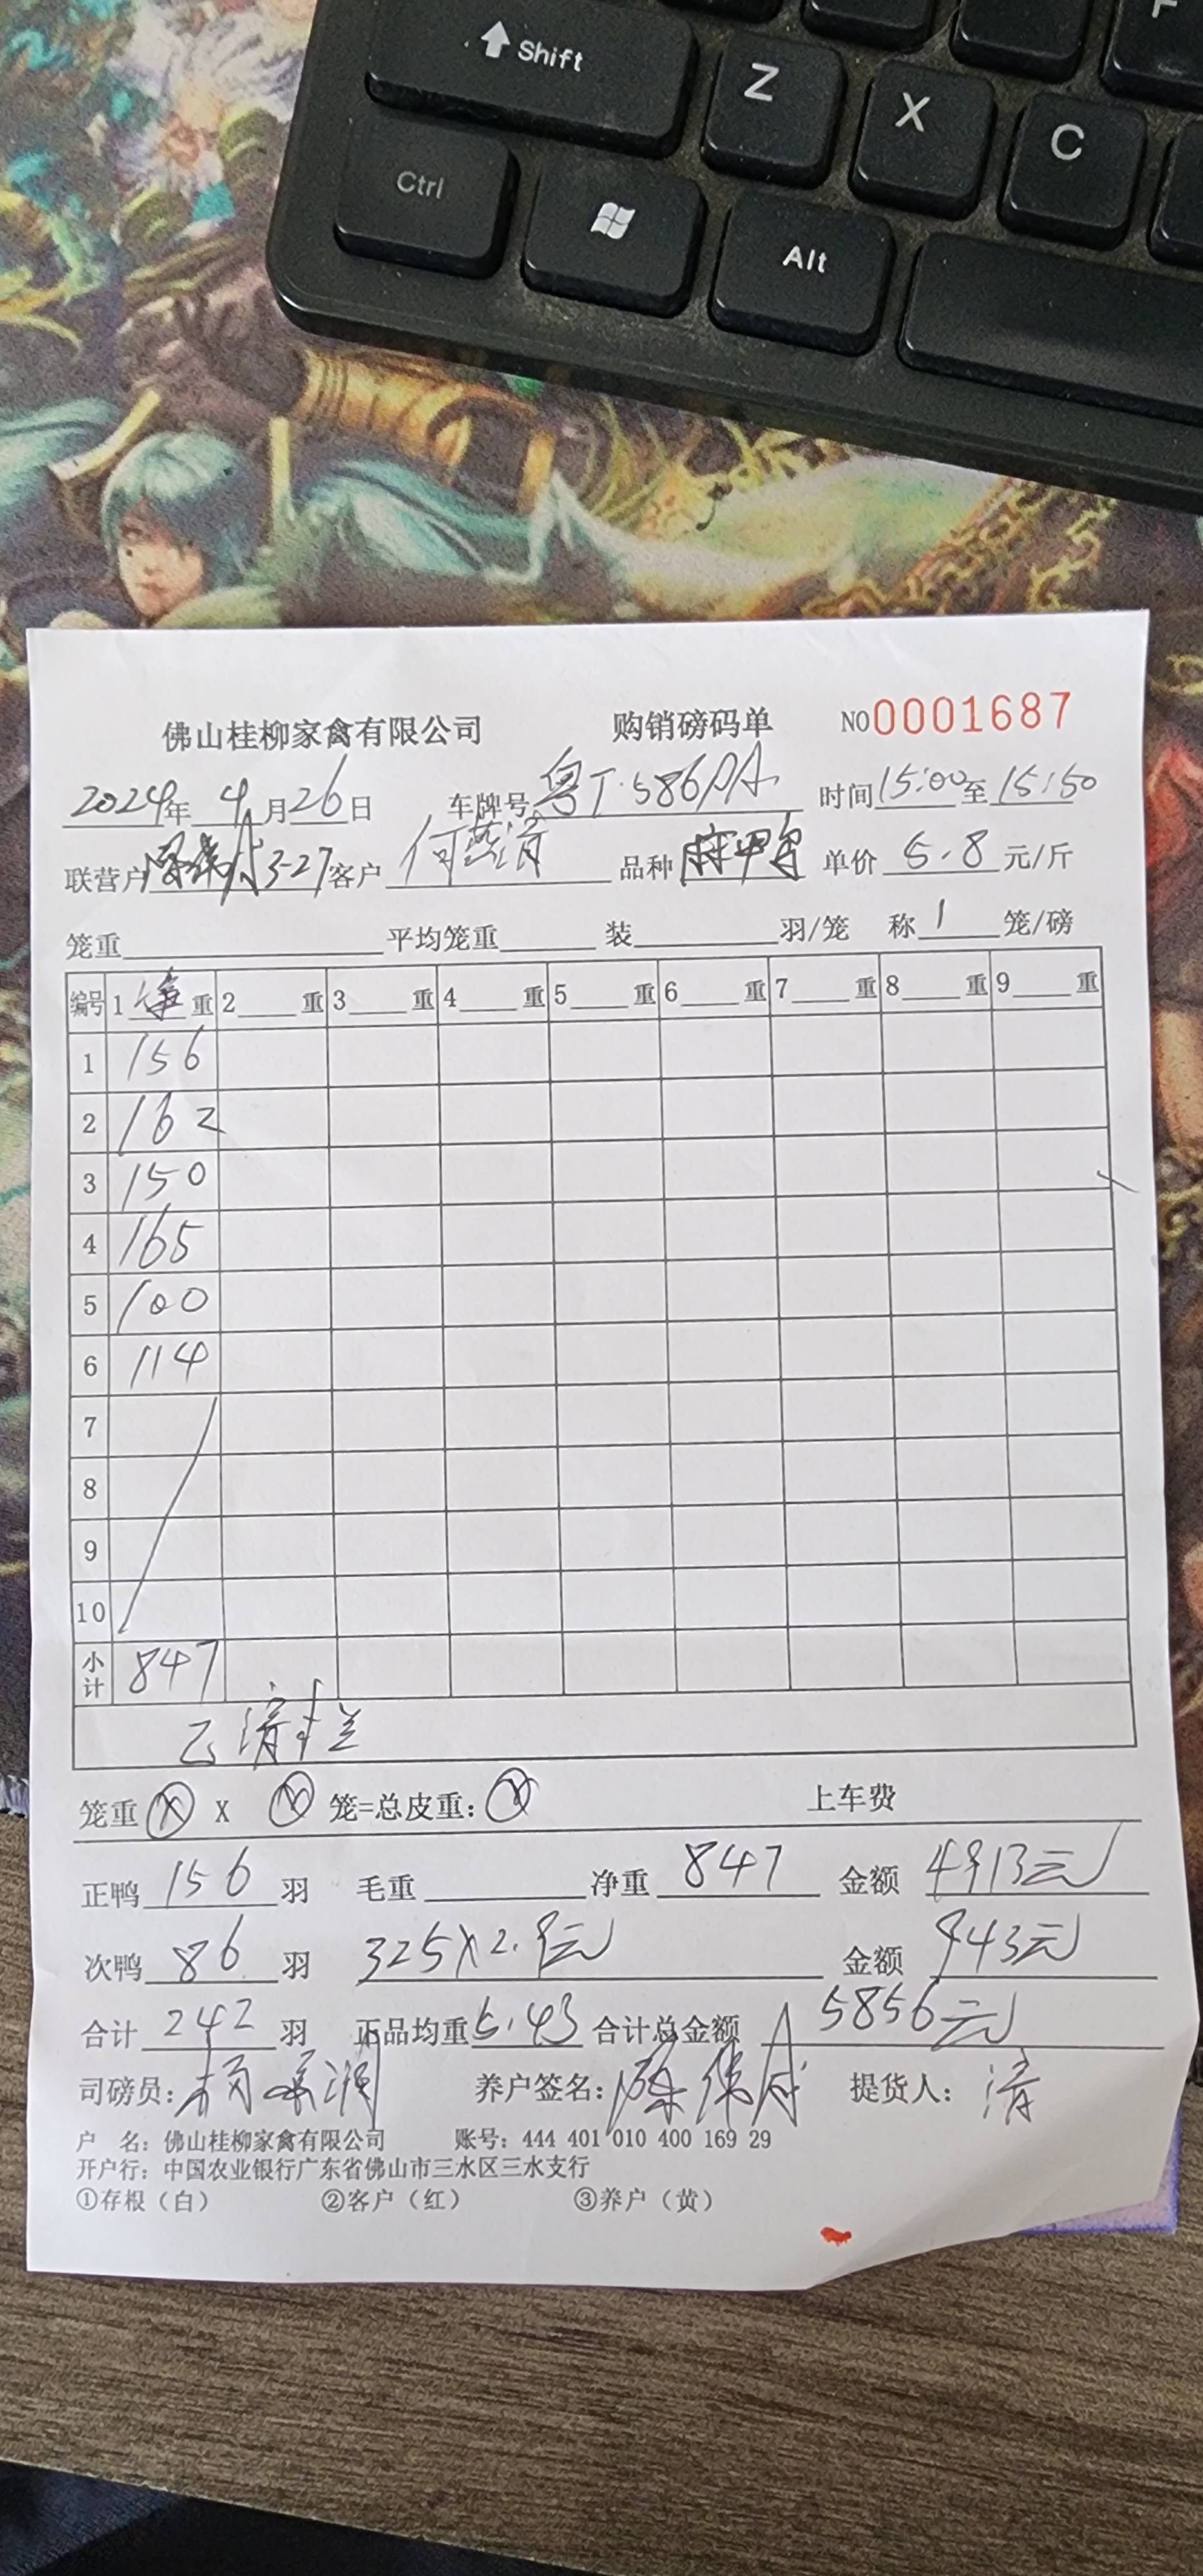 F
Shift Z X C
Ctrl Alt
佛山桂柳家禽有限公司 购销磅码单 NO0001687
2024年 4月26日 车牌号 粤T·586 时间15:00至15:50
联营户 3-27 客户 何 品种 麻鸭 单价 5.8 元/斤
笼重 平均笼重 装 羽/笼 称 1 笼/磅
编号 1 净 重 2 重 3 重 4 重 5 重 6 重 7 重 8 重 9 重
1 156
2 162
3 150
4 165
5 100
6 114
7
8
9
10
小计 847
已清
笼重 X 笼=总皮重: 上车费
正鸭 156 羽 毛重 净重 847 金额 4913元
次鸭 86 羽 325X2.9元 金额 943元
合计 242 羽 正品均重 5.43 合计总金额 5856元
司磅员: 养户签名: 陈伟成 提货人: 清
户 名: 佛山桂柳家禽有限公司 账号: 444 401 010 400 169 29
开户行: 中国农业银行广东省佛山市三水区三水支行
①存根（白） ②客户（红） ③养户（黄）